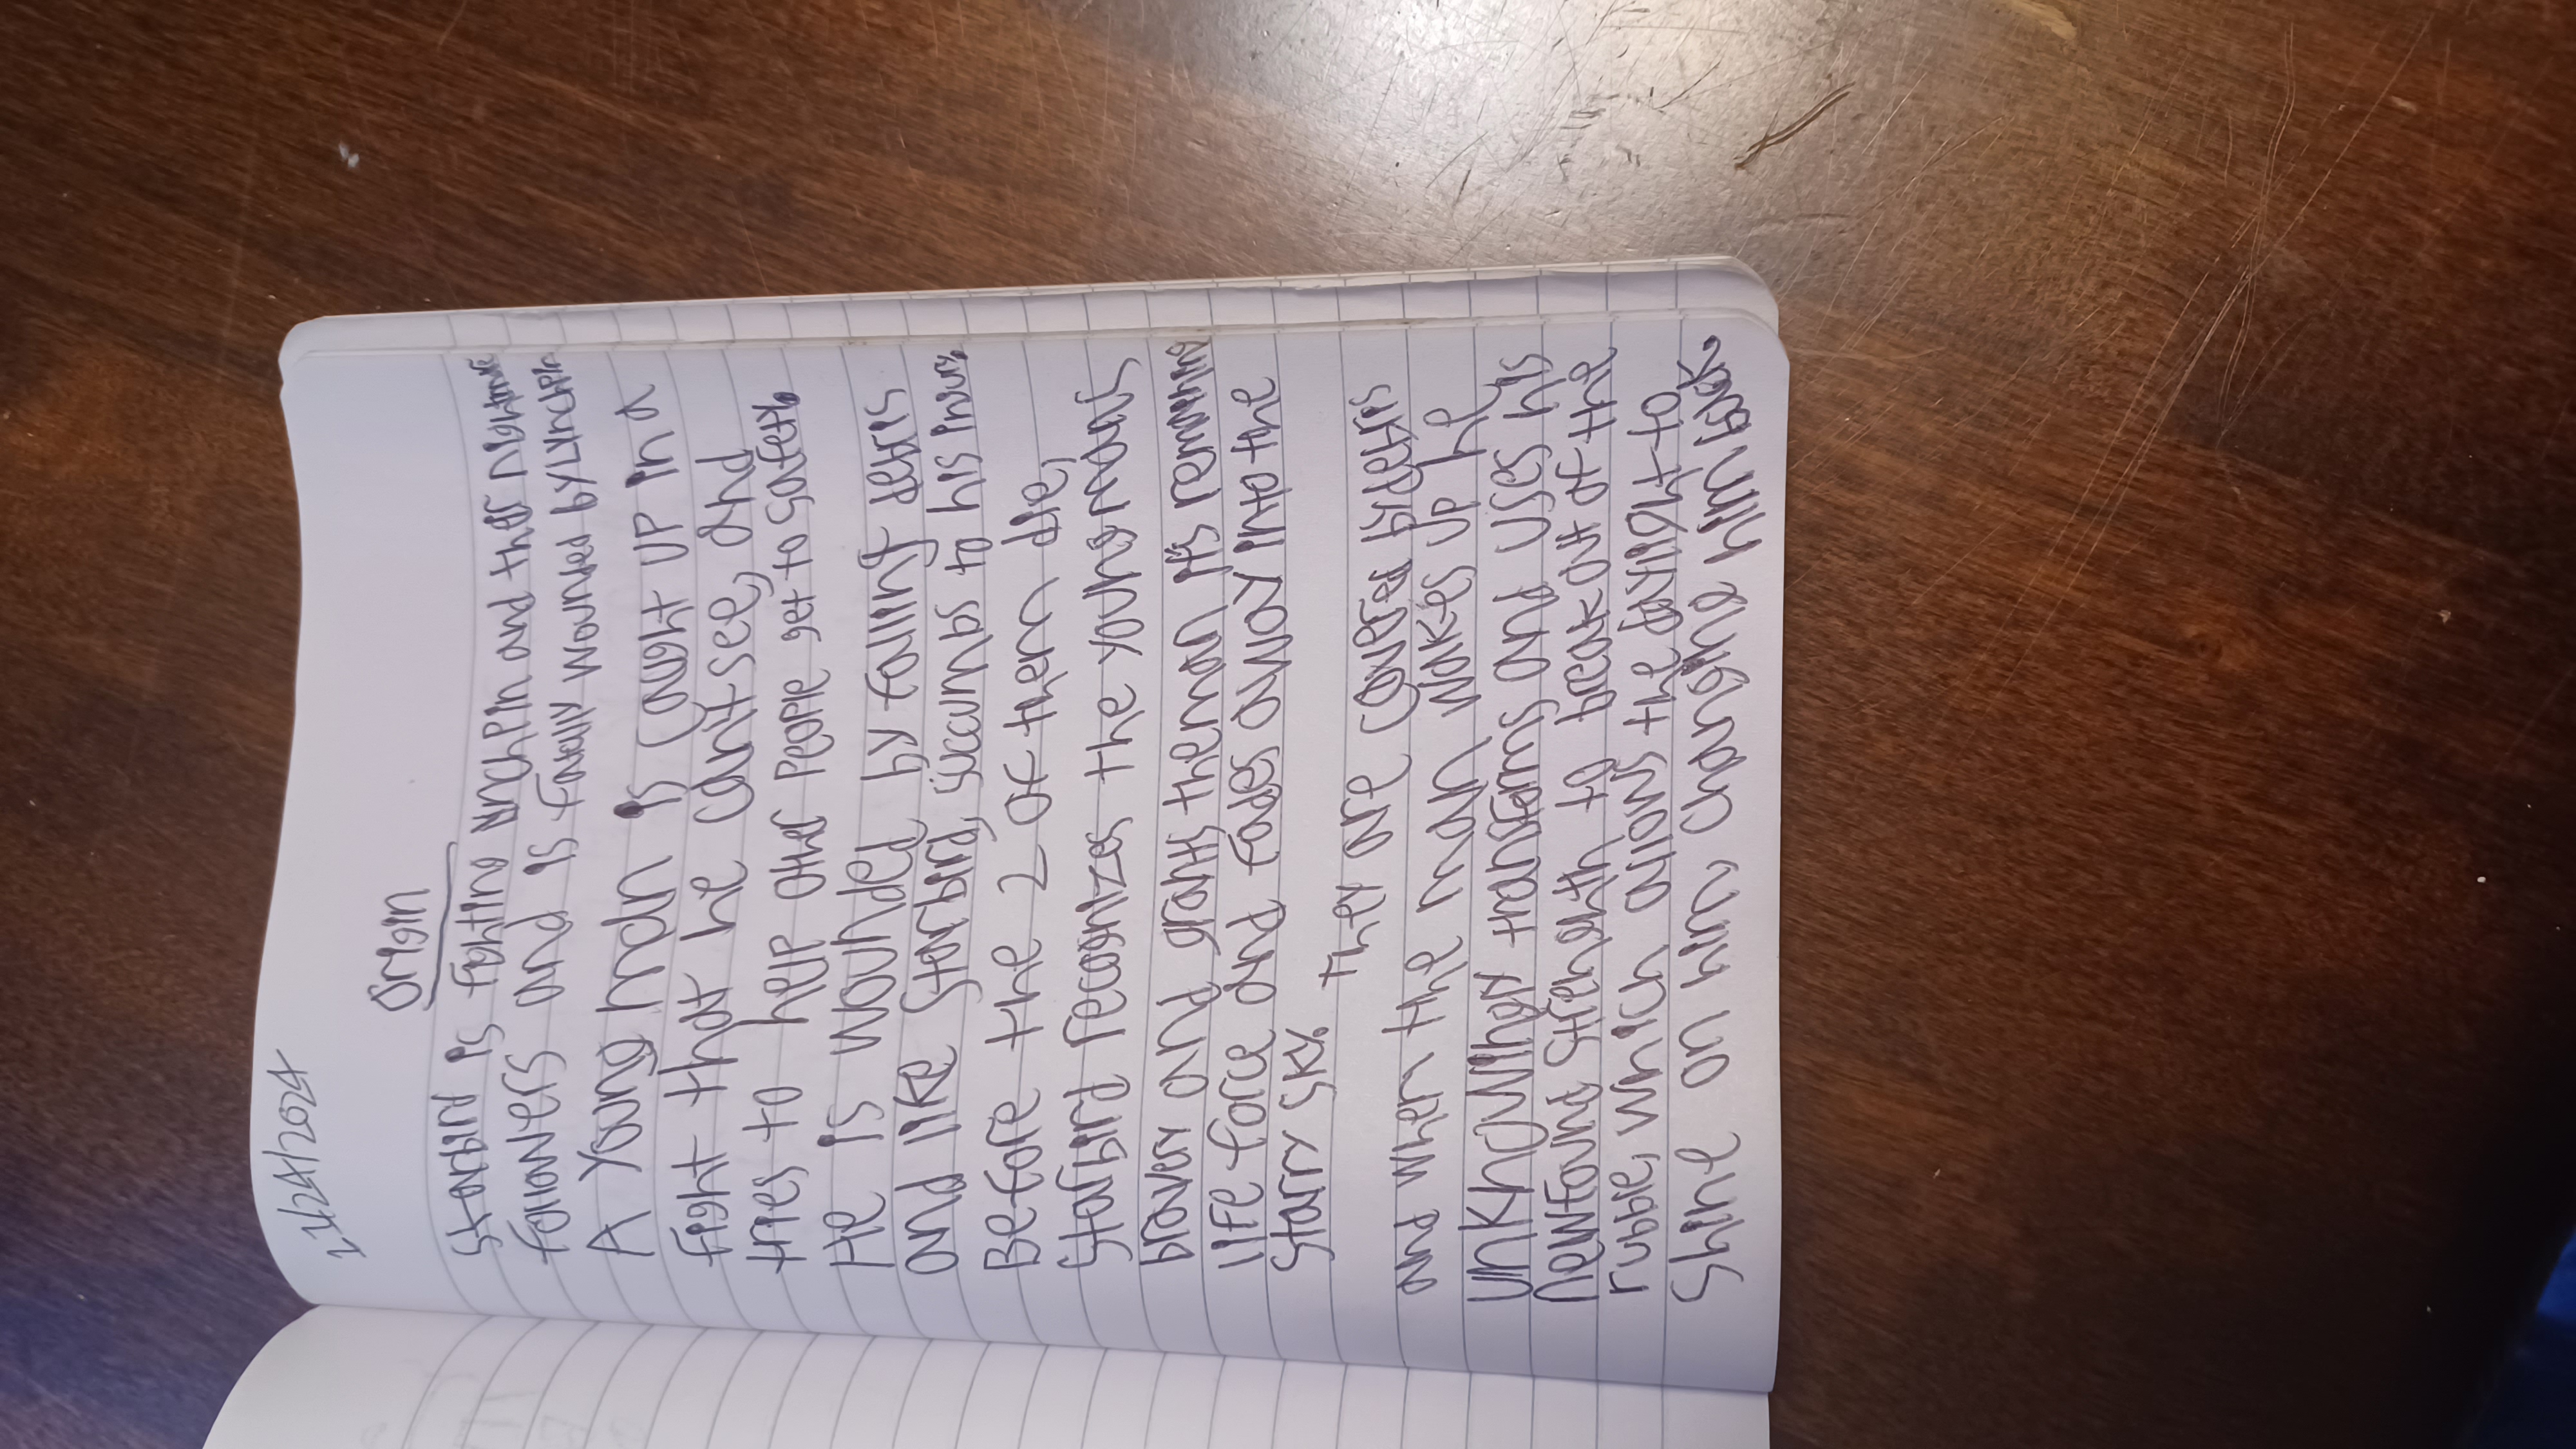 11/24/2024
Origin
Starbird is fighting Lynchpin and their nightmare
followers and is fatally wounded by Lynchpin
A Young man is caught up in a
fight that he can't see, and
tries to help other people get to safety.
He is wounded by falling debris
and like Starbird, succumbs to his injury.
Before the 2 of them die,
Starbird recognizes the young mans
bravery and grants the man it's remaining
life force and fades away into the
starry sky.
They are covered by debris
and when the man wakes up he
unknowingly transforms and uses his
newfound strenghth to break out of the
rubble, which allows the daylight to
shine on him, changing him back.